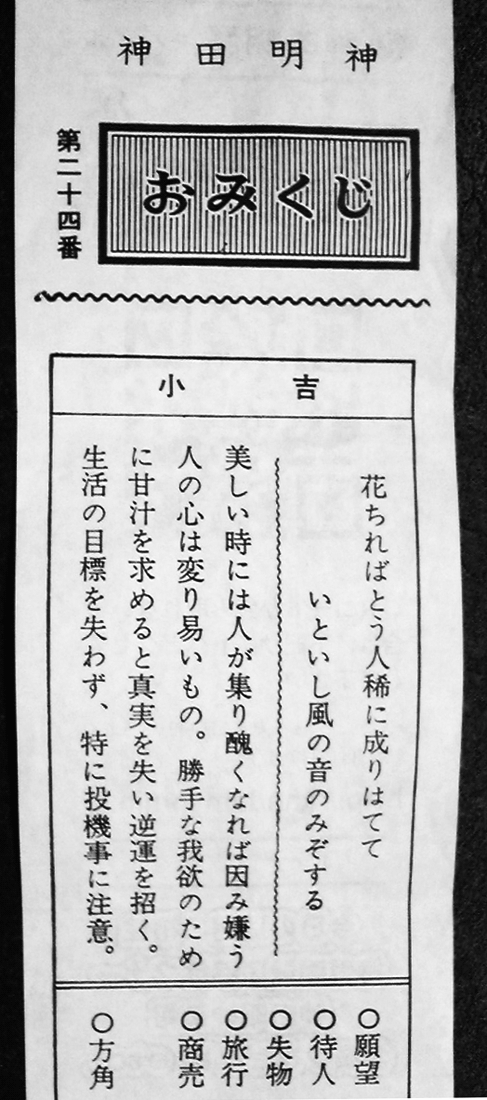 神田明神
おみくじ
第二十四番
小吉
花ちればとう人稀に成りはてて
いといし風の音のみぞする
美しい時には人が集り醜くなれば因み嫌う
人の心は変り易いもの。勝手な我欲のため
に甘汁を求めると真実を失い逆運を招く。
生活の目標を失わず、特に投機事に注意。
○願望
○待人
○失物
○旅行
○商売
○方角